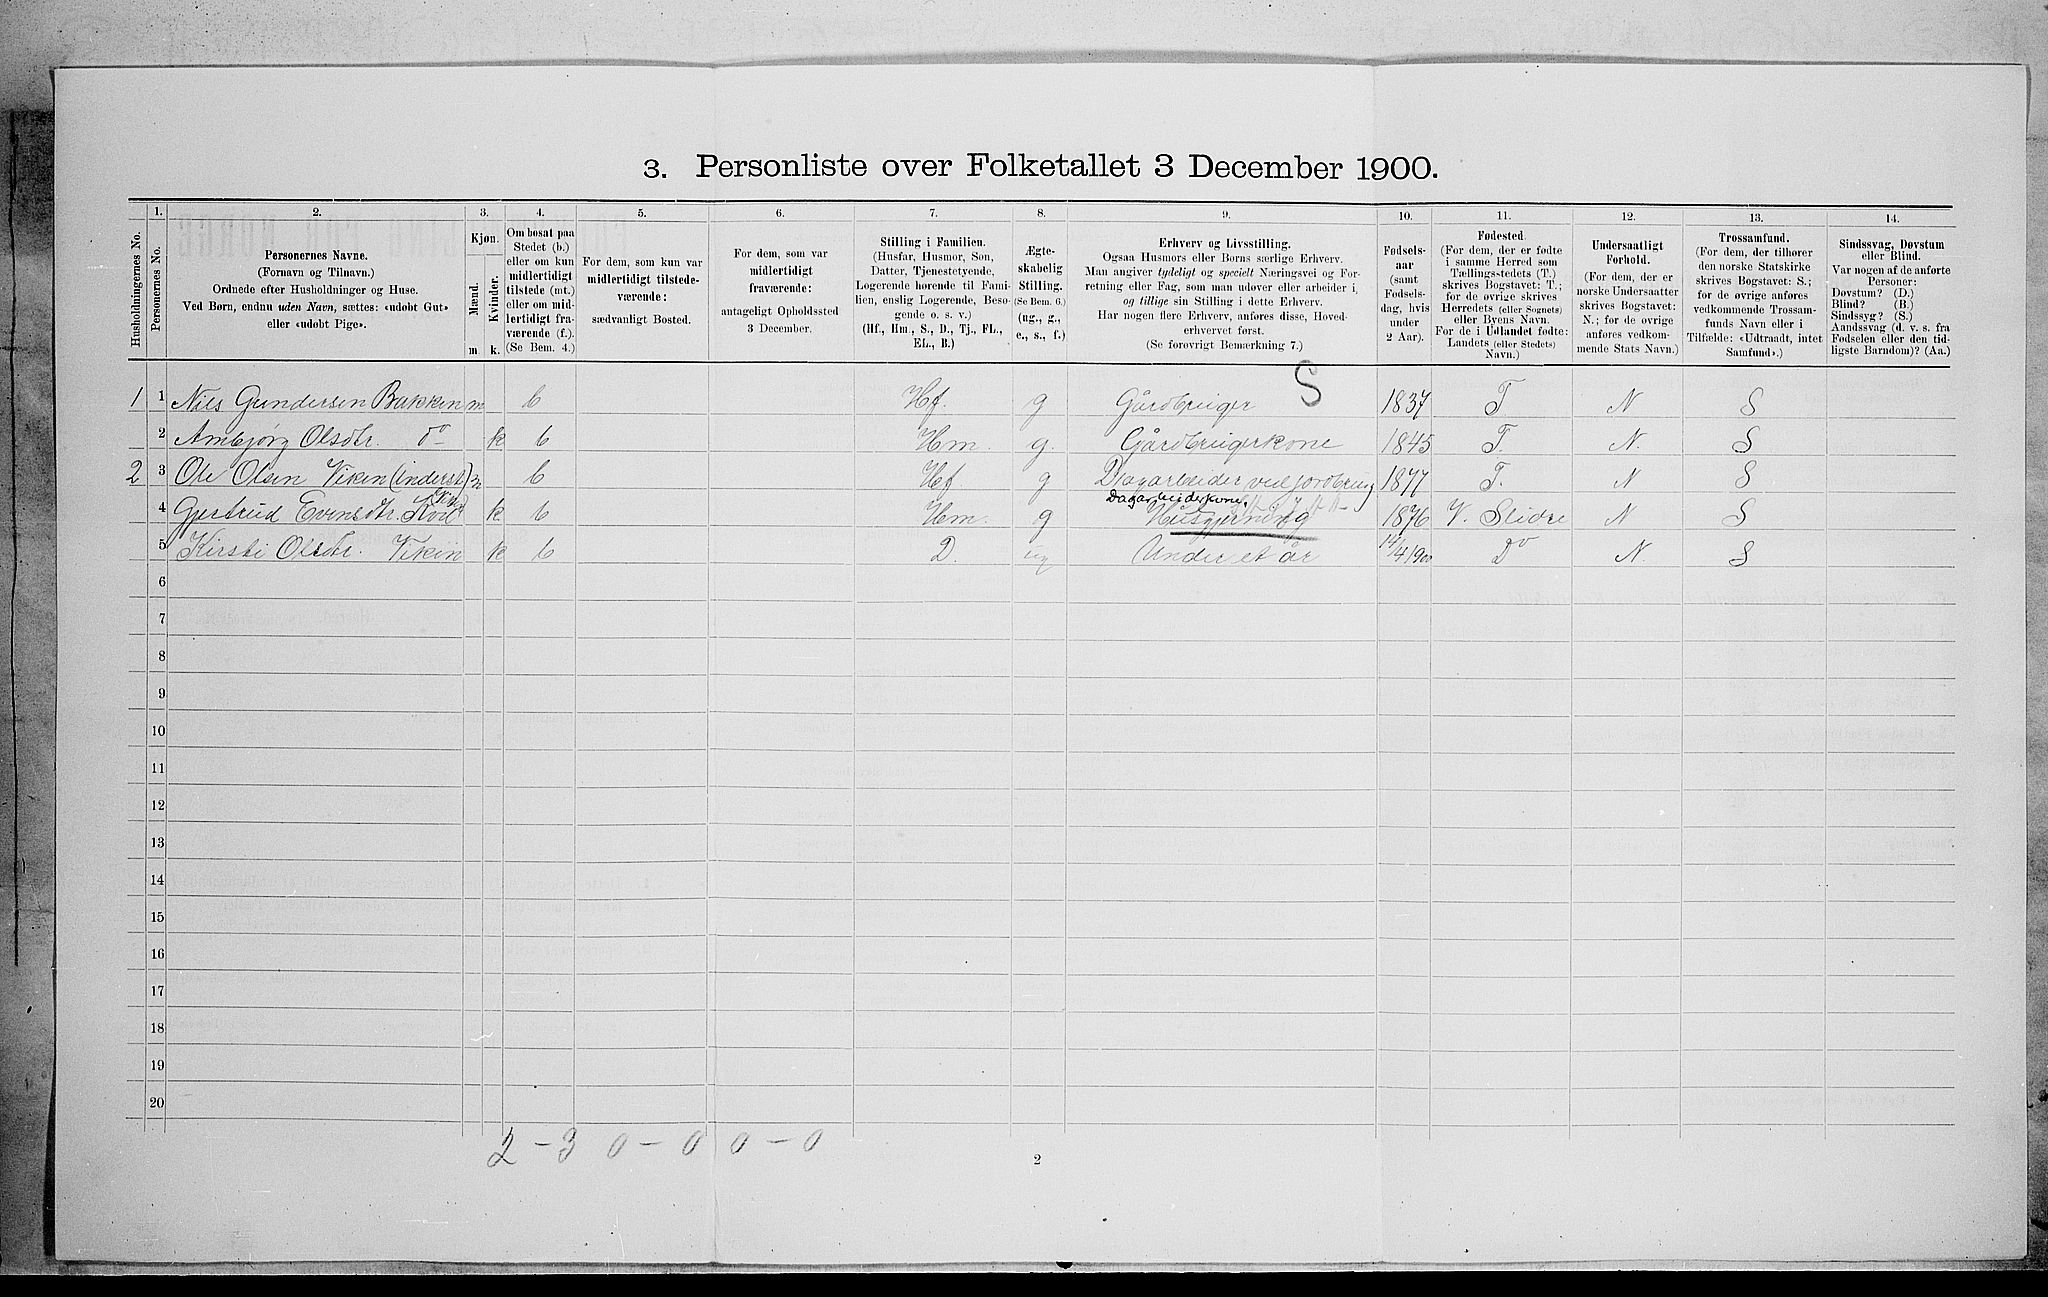 3. Personliste over Folketallet 3 December 1900.
1. 2. 3. 4. 5. 6. 7. 8. 9. 10. 11. 12. 13. 14.
Husholdningernes No.
Personernes No.
Personernes Navne.
(Fornavn og Tilnavn.)
Ordnede efter Husholdninger og Huse.
Ved Børn, endnu uden Navn, sættes: «udøbt Gut»
eller «udøbt Pige».
Kjøn.
Mænd.
Kvinder.
m k.
Om bosat paa
Stedet (b.)
eller om kun
midlertidigt
tilstede (mt.)
eller om mid-
lertidigt fra-
værende (f.).
(Se Bem. 4.)
For dem, som kun var
midlertidigt tilstede-
værende:
sædvanligt Bosted.
For dem, som var
midlertidigt
fraværende:
antageligt Opholdssted
3 December.
Stilling i Familien.
(Husfar, Husmor, Søn,
Datter, Tjenestetyende,
Logerende hørende til Fami-
lien, enslig Logerende, Besø-
gende o. s. v.)
(Hf., Hm., S., D., Tj., FL.,
EL., B.)
Ægte-
skabelig
Stilling.
(Se Bem. 6.)
(ug., g.,
e., s., f.)
Erhverv og Livsstilling.
Ogsaa Husmors eller Børns særlige Erhverv.
Man angiver tydeligt og specielt Næringsvei og For-
retning eller Fag, som man udøver eller arbeider i,
og tillige sin Stilling i dette Erhverv.
Har nogen flere Erhverv, anføres disse, Hoved-
erhvervet først.
(Se forøvrigt Bemærkning 7.)
Fødsels-
aar
(samt
Fødsels-
dag, hvis
under
2 Aar).
Fødested.
(For dem, der er fødte
i samme Herred som
Tællings-stedets (T.)
skrives Bogstavet: T.;
for de øvrige skrives
Herredets (eller Sognets)
eller Byens Navn.
For de i Udlandet fødte:
Landets (eller Stedets)
Navn.)
Undersaatligt
Forhold.
(For dem, der er
norske Undersaatter
skrives Bogstavet:
N.; for de øvrige
anføres vedkom-
mende Stats Navn.)
Trossamfund.
(For dem, der tilhører
den norske Statskirke
skrives Bogstavet: S.;
for de øvrige anføres
vedkommende Trossam-
funds Navn eller i
Tilfælde: «Udtraadt, intet
Samfund».)
Sindssvag, Døvstum
eller Blind.
Var nogen af de anførte
Personer:
Døvstum? (D.)
Blind? (B.)
Sindssyg? (S.)
Aandssvag (d. v. s. fra
Fødselen eller den tid-
ligste Barndom)? (Aa.)
S
1 1 Nils Gundersen Bakken m b Hf. g Gårdbruger 1837 T N S
2 Ambjørg Olsdtr. do k b Hm. g. Gårdbrugerkone 1845 T. N. S
2 3 Ole Olsen Viken (inderst) m b Hf g Dagarbeider ved jordbrug 1877 T. N S
Dagarbeiderkone.
4 Gjertrud Evensdtr. k b Hm. g Husgjerning 1876 V. Slidre N S
5 Kirsti Olsdtr. Viken k b D. ug Under et år 14/4 1900 Do N. S
6
7
8
9
10
11
12
13
14
15
16
17
18
19
20
2 - 3 0 - 0 0 - 0
2